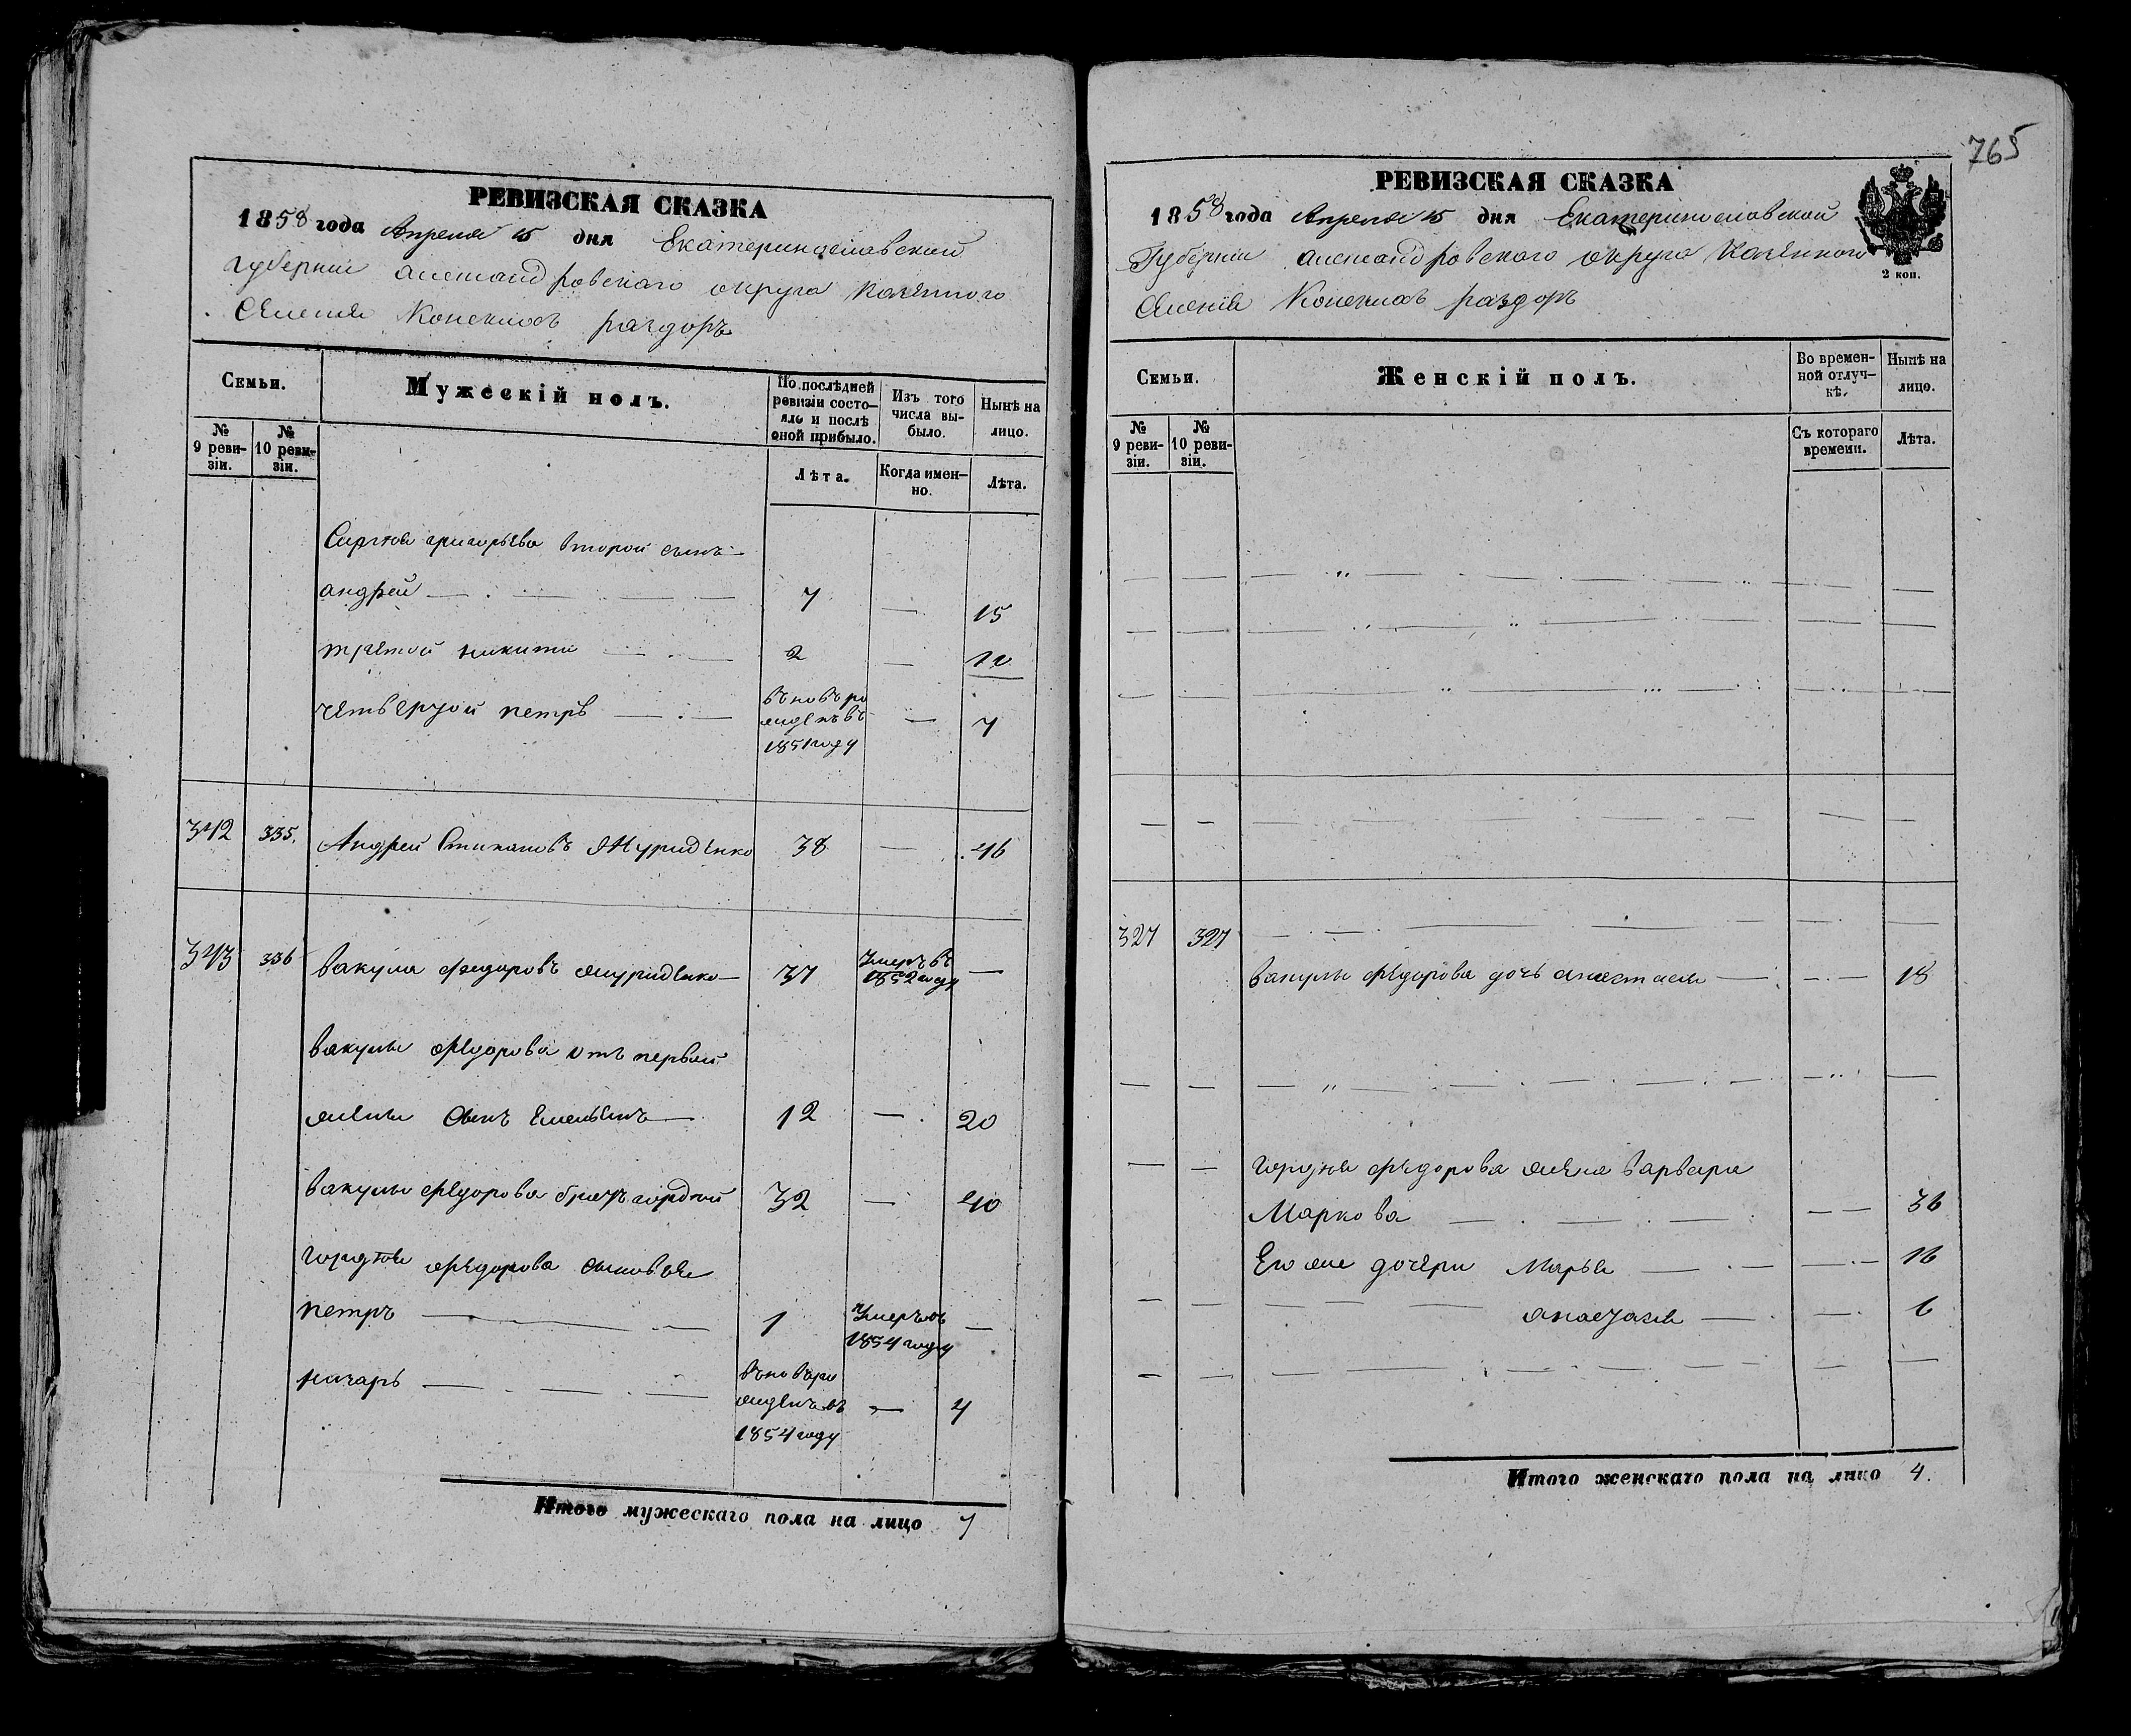 765
РЕВИЗСКАЯ СКАЗКА
1858 года Апреля 15 дня Екатеринославской
губернии александровского округа
Конскихъ раздоръ
Семьи.
Мужескій полъ.
По послѣдней ревизіи состояло и послѣ оной прибыло.
Изъ того числа выбыло.
Нынѣ на лицо.
№ 9 ревизіи.
№ 10 ревизіи.
Лѣта.
Когда именно.
Лѣта.
григорьева второй сынъ
андрей 7 — 15
третий никита 2 —
четвертой петръ въновь рожденъ въ 1851 году — 7
342 335. Андрей 38 — 46
343 336 вакула федоровъ 37 Умеръ въ 1852 году —
вакулы федорова отъ первой
жены сынъ Емельянъ 12 — 20
вакулы федорова братъ гордей 32 — 40
гордея федорова сыновья
петръ 1 Умеръ въ 1854 году —
назаръ въновь рожденъ въ 1854 году — 4
Итого мужескаго пола на лицо 7
РЕВИЗСКАЯ СКАЗКА
1858 года Апреля 15 дня Екатеринославской
Губернии александровского округа
Конскихъ раздоръ
2 коп.
Семьи.
Женскій полъ.
Во временной отлучкѣ.
Нынѣ на лицо.
№ 9 ревизіи.
№ 10 ревизіи.
Съ котораго времени.
Лѣта.
327 327
вакулы федорова дочь анастасия 18
гордея федорова жена варвара
Маркова 36
Его же дочери Марья 16
анастасия 6
Итого женскаго пола на лицо 4.